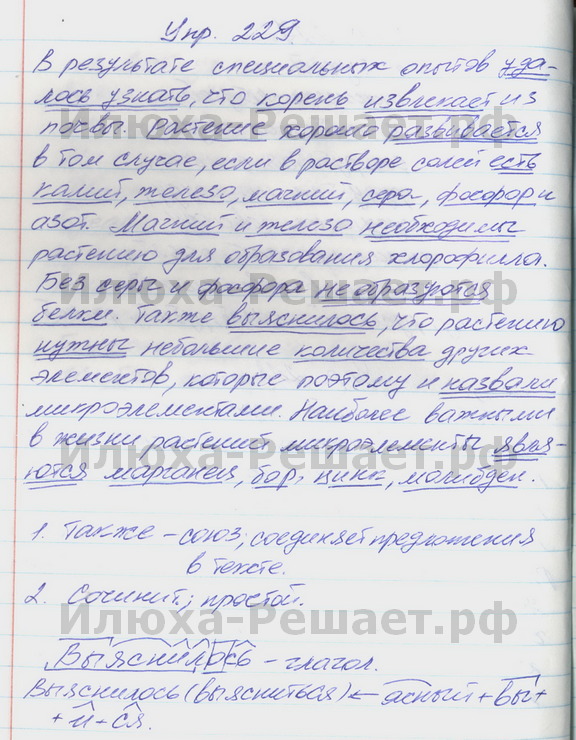 Упр. 229.
В результате специальных опытов уда-
лось узнать, что корень извлекает из
почвы. Растение хорошо развивается
в том случае, если в растворе солей есть
калий, железо, магний, сера, фосфор и
азот. Магний и железо необходимы
растению для образования хлорофилла.
Без серы и фосфора не образуются
белки. Также выяснилось, что растению
нужны небольшие количества других
элементов, которые поэтому и назвали
микроэлементами. Наиболее важными
в жизни растений микроэлементы явля-
ются марганец, бор, цинк, молибден.
1. Также – союз; соединяет предложения
в тексте.
2. Сочинит.; простой.
Выяснилось – глагол.
Выяснилось (выясниться) ← ясный + вы +
+ и + ся.
Илюха-Решает.рф
Илюха-Решает.рф
Илюха-Решает.рф
Илюха-Решает.рф
Илюха-Решает.рф